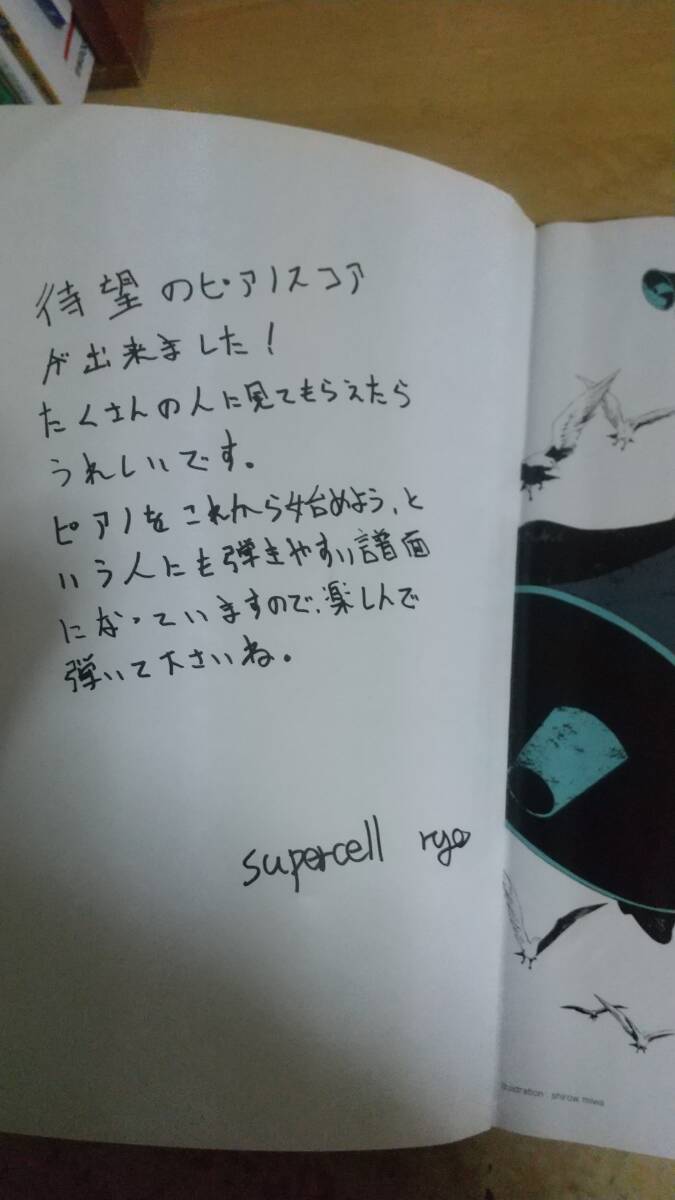 待望のピアノスコア
が出来ました!
たくさんの人に見てもらえたら
うれしいです。
ピアノをこれから始めよう、と
いう人にも弾きやすい譜面
になっていますので、楽しんで
弾いて下さいね。
supercell ryo
illustration : shirow miwa